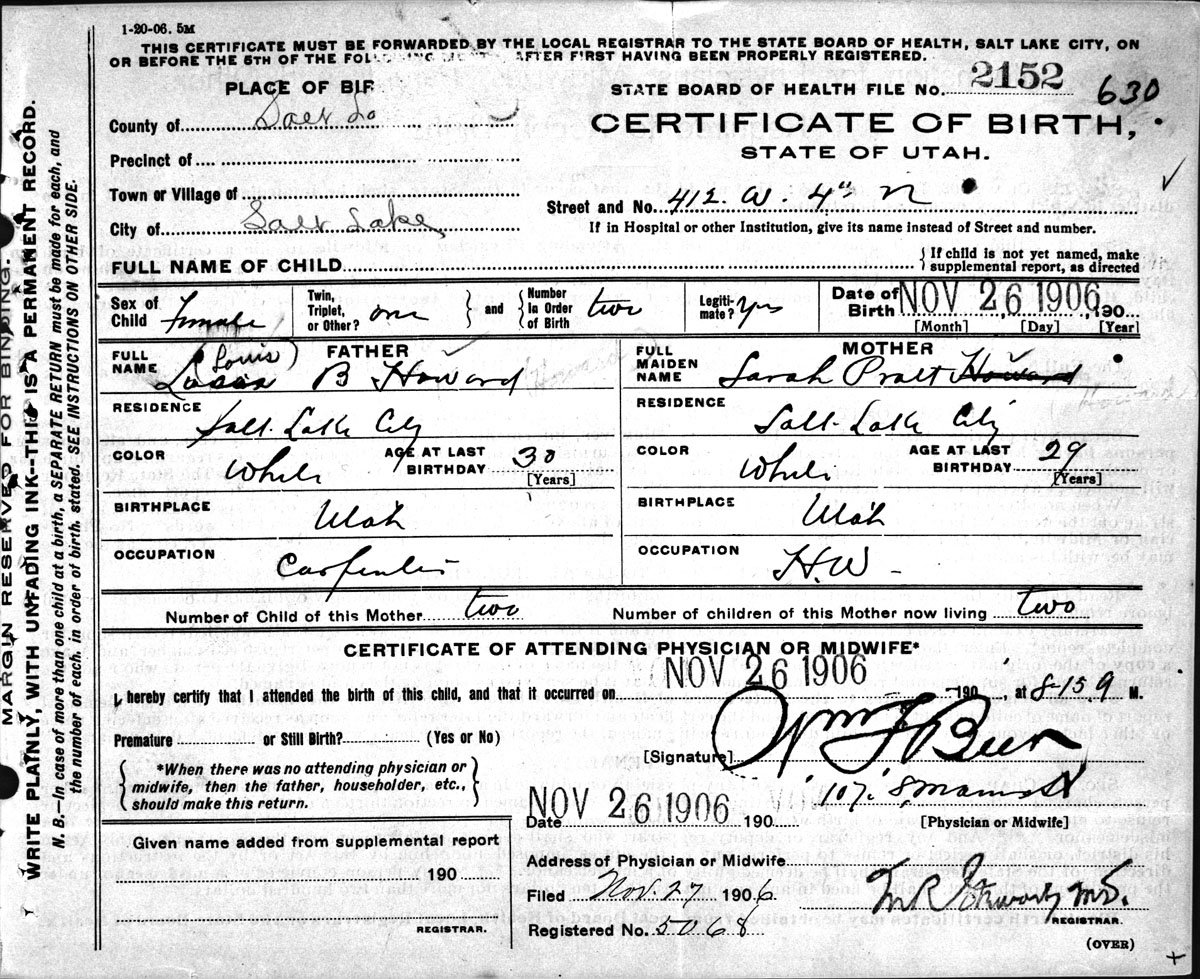 1-20-06. 5M
THIS CERTIFICATE MUST BE FORWARDED BY THE LOCAL REGISTRAR TO THE STATE BOARD OF HEALTH, SALT LAKE CITY, ON
OR BEFORE THE 5TH OF THE FOLLOWING AFTER FIRST HAVING BEEN PROPERLY REGISTERED.
PLACE OF BIR
STATE BOARD OF HEALTH FILE No. 2152 630
County of Salt La
CERTIFICATE OF BIRTH,
STATE OF UTAH.
Precinct of
Town or Village of
Street and No. 412. W. 4" N
City of Salt Lake
If in Hospital or other Institution, give its name instead of Street and number.
FULL NAME OF CHILD { If child is not yet named, make supplemental report, as directed
Sex of Child Female Twin, Triplet, or Other? one } and { Number in Order of Birth two Legiti-mate? yes Date of Birth NOV 26 1906 190
[Month] [Day] [Year]
FATHER
FULL NAME (Louis) B Howard
RESIDENCE Salt Lake City
COLOR White AGE AT LAST BIRTHDAY 30
[Years]
BIRTHPLACE Utah
OCCUPATION Carpenter
MOTHER
FULL MAIDEN NAME Sarah Pratt Howard
RESIDENCE Salt Lake City
COLOR White AGE AT LAST BIRTHDAY 29
[Years]
BIRTHPLACE Utah
OCCUPATION H.W -
Number of Child of this Mother two Number of children of this Mother now living two
CERTIFICATE OF ATTENDING PHYSICIAN OR MIDWIFE*
I hereby certify that I attended the birth of this child, and that it occurred on NOV 26 1906 190 , at 8-15 M.
Premature or Still Birth? (Yes or No)
[Signature] Wm F Beer
{ *When there was no attending physician or
midwife, then the father, householder, etc.,
should make this return. }
Date NOV 26 1906 190
107. S. Main St
[Physician or Midwife]
Given name added from supplemental report
190
REGISTRAR.
Address of Physician or Midwife
Filed Nov. 27 1906
M.D.
REGISTRAR.
Registered No. 5068
(OVER)
MARGIN RESERVED FOR BINDING.
WRITE PLAINLY, WITH UNFADING INK--THIS IS A PERMANENT RECORD.
N. B.--In case of more than one child at a birth, a SEPARATE RETURN must be made for each, and
the number of each, in order of birth, stated. SEE INSTRUCTIONS ON OTHER SIDE.